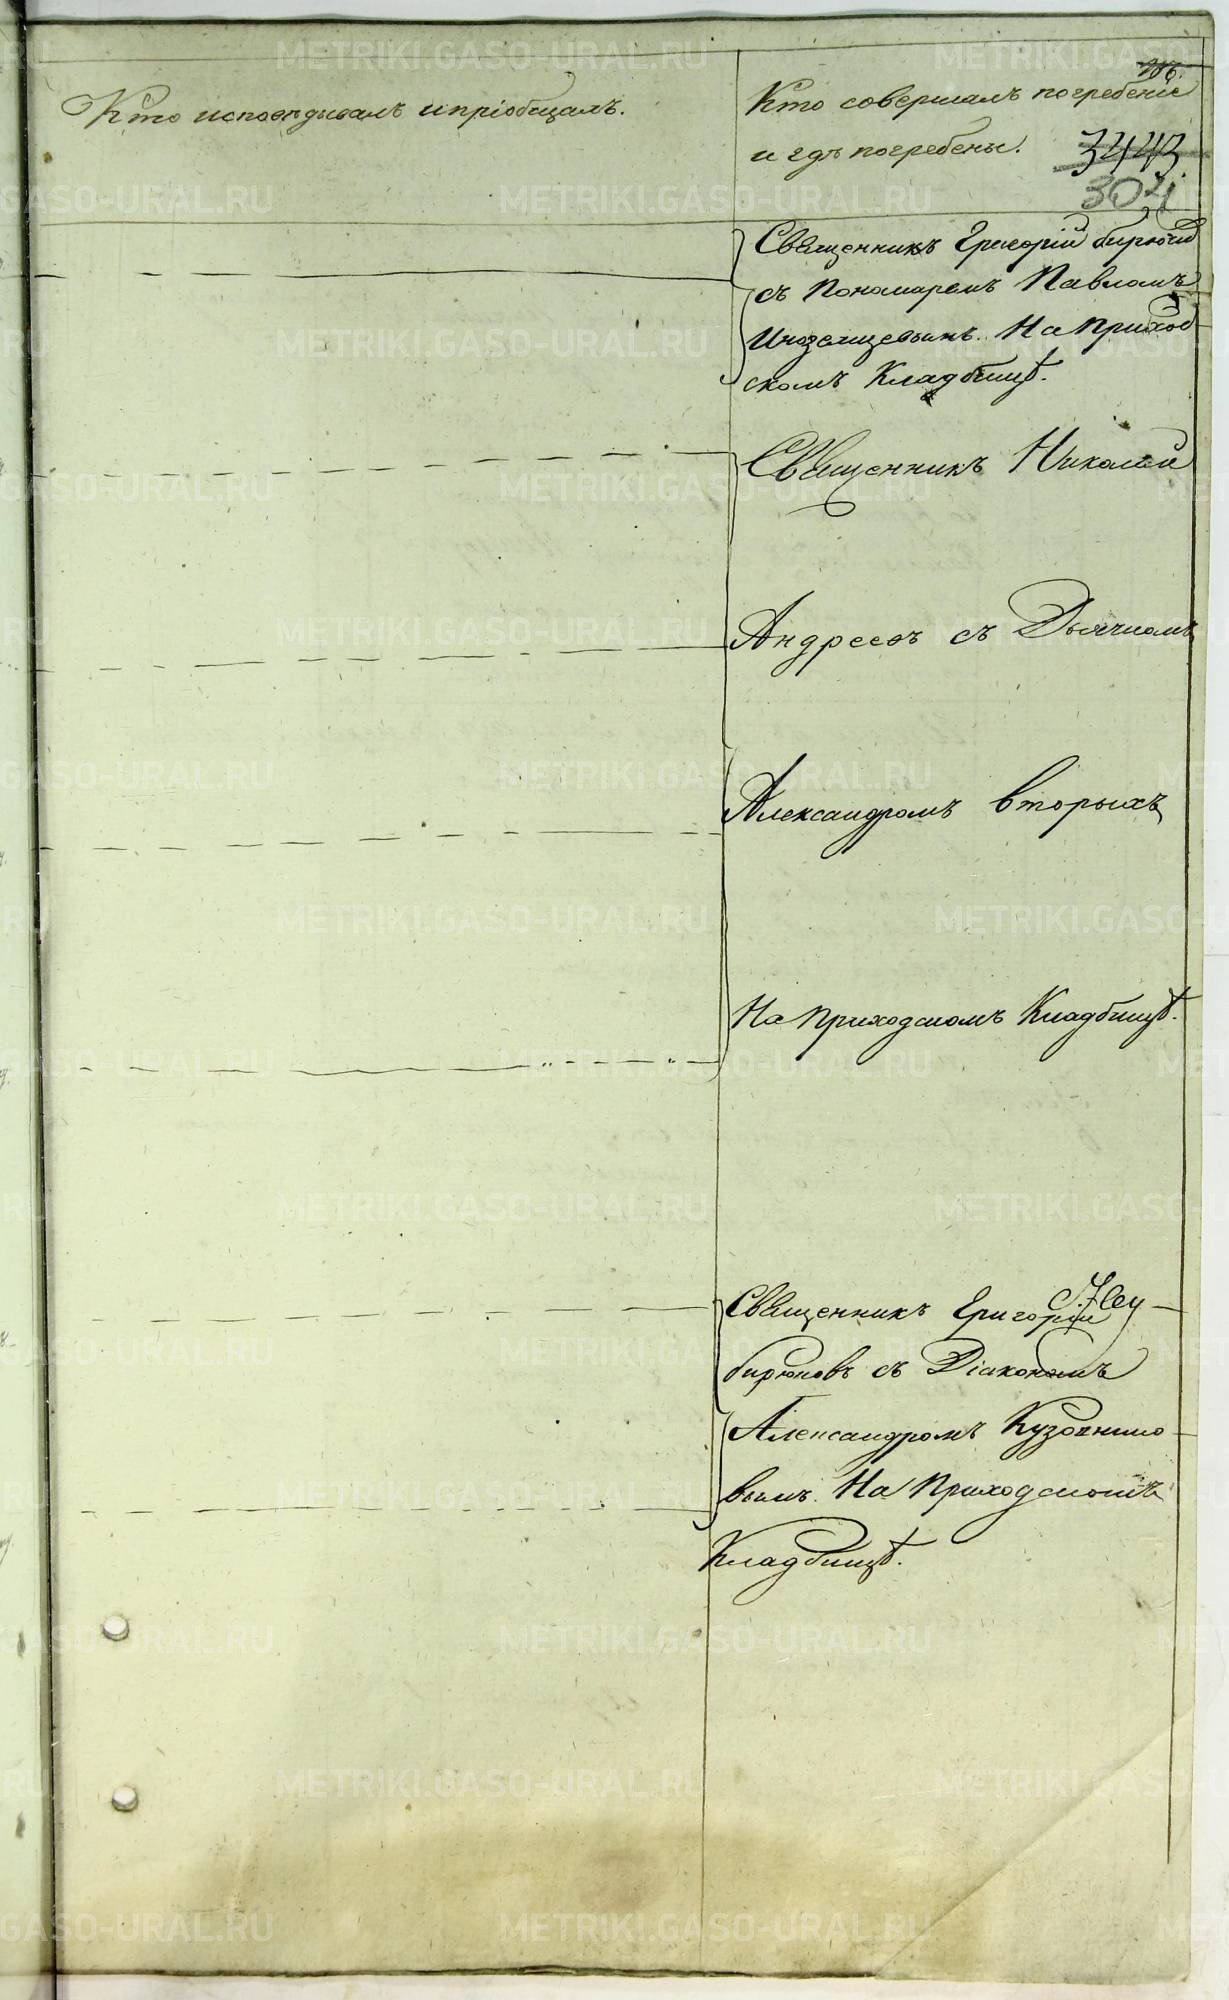 Кто исповѣдывалъ и пріобщалъ.
Кто совершалъ погребеніе
и гдѣ погребены.
3443
304
Священникъ Григорій Бирюков
съ Пономаремъ Павломъ
Иноземцевымъ. На Приход
скомъ Кладбищѣ.
Священникъ Николай
Андреевъ съ Дьячкомъ
Александромъ Вторыхъ
На приходскомъ Кладбищѣ.
Священникъ Григорій
Бирюковъ съ Діакономъ
Александромъ Кузовнико-
вымъ. На Приходскомъ
Кладбищѣ.
METRIKI.GASO-URAL.RU